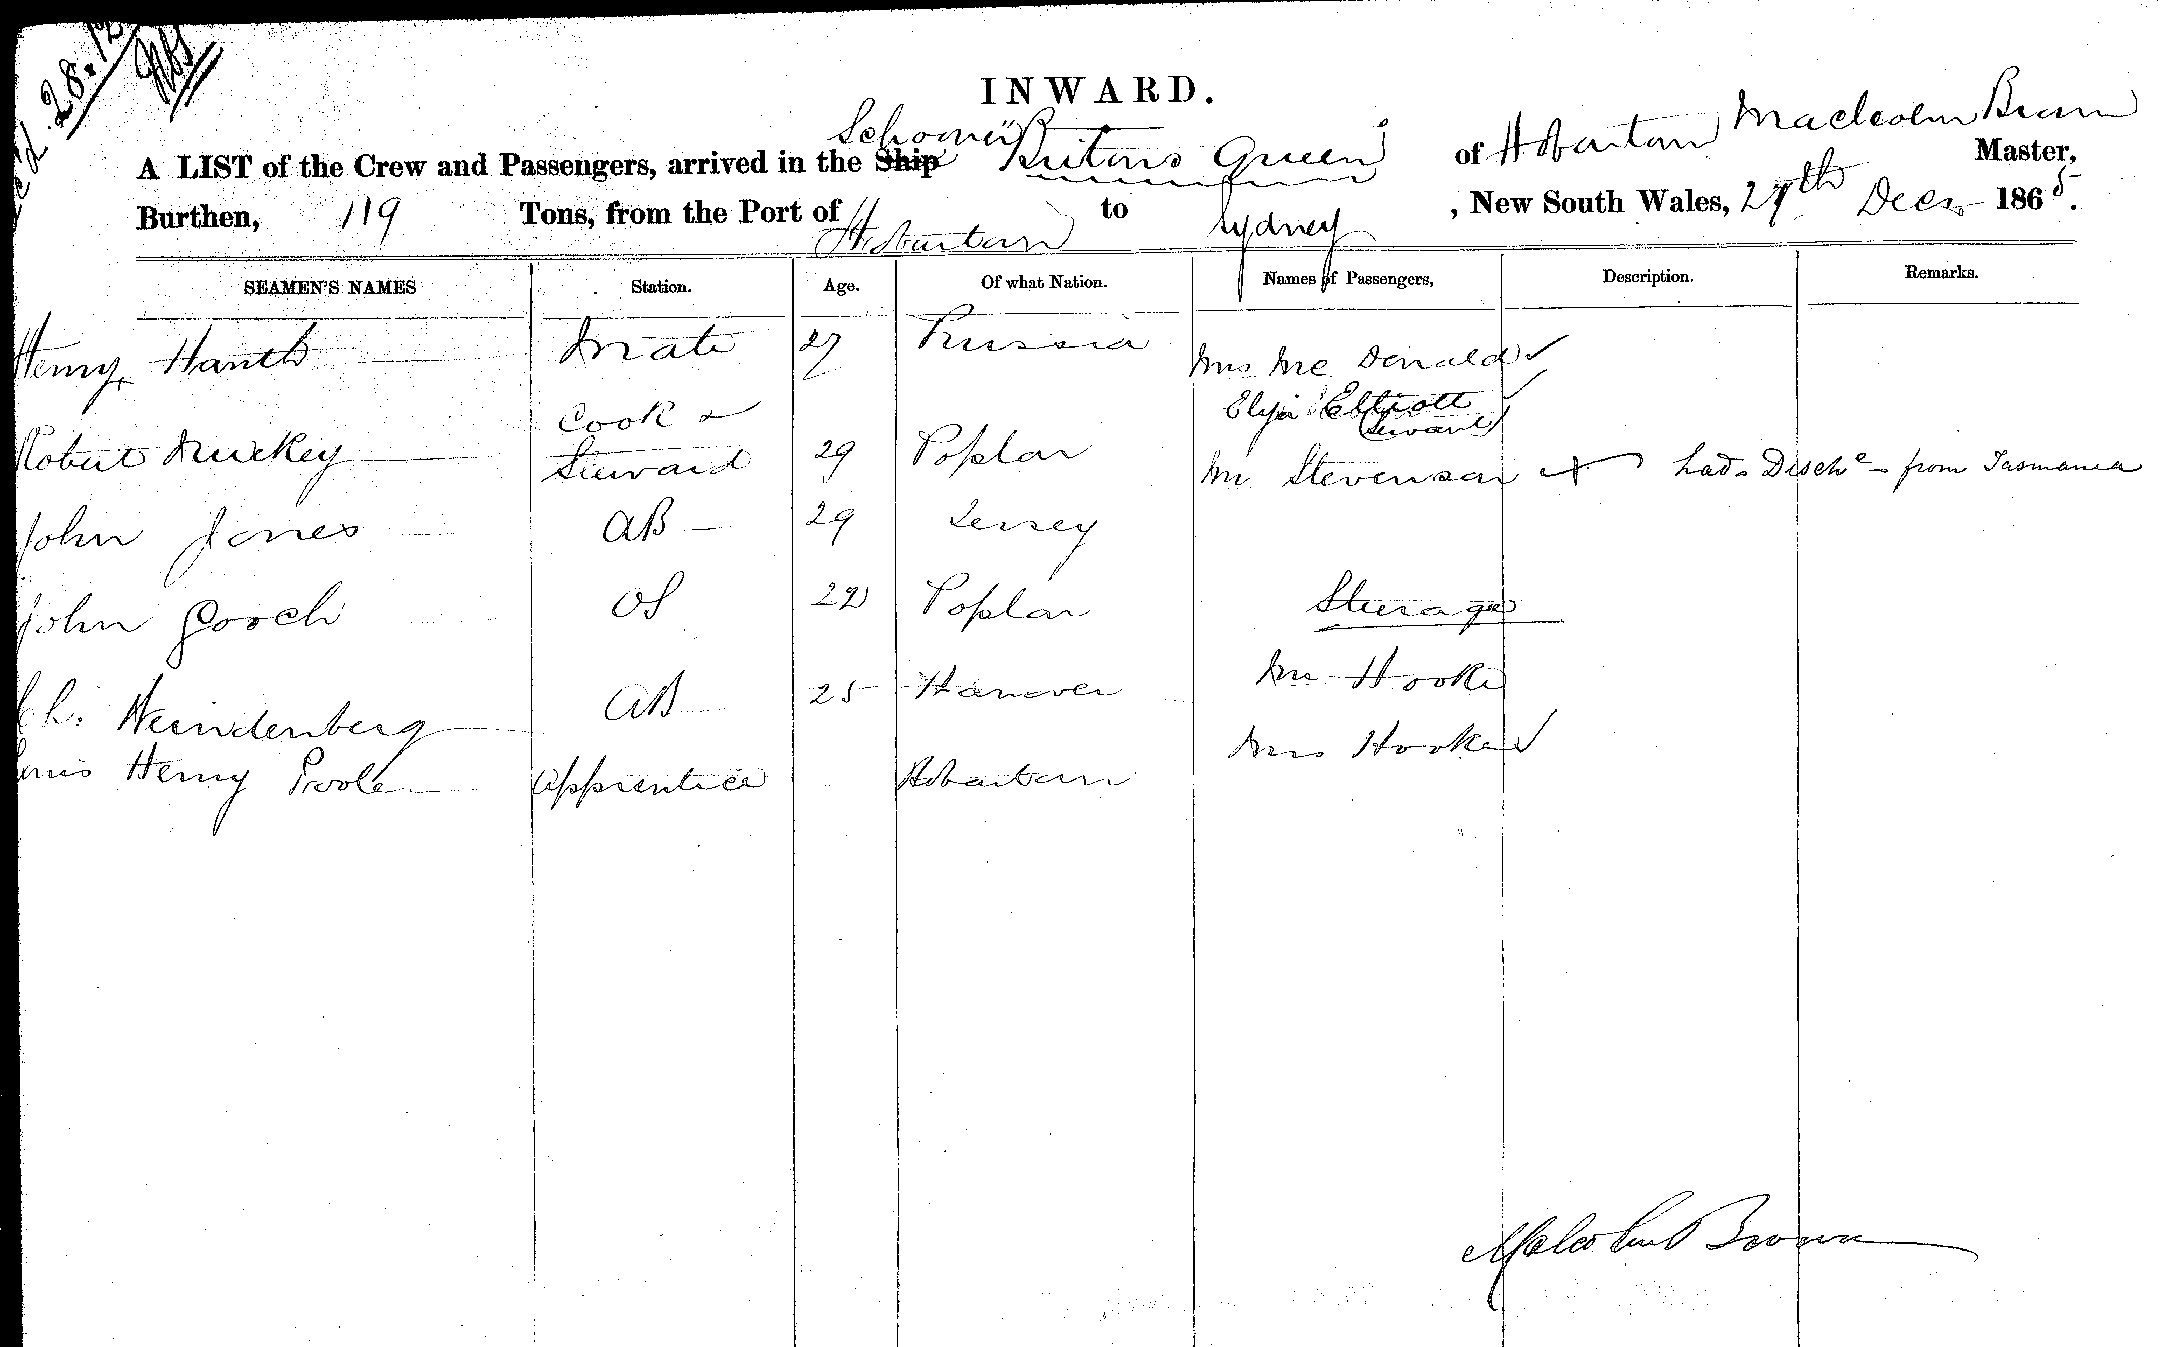 28.12
INWARD.
Schooner
A LIST of the Crew and Passengers, arrived in the Ship Britons Queen of Hobarton Maclcolm Brown Master,
Burthen, 119 Tons, from the Port of Hobartan to Sydney, New South Wales, 27th Decr 1865.
SEAMEN'S NAMES Station. Age. Of what Nation. Names of Passengers, Description. Remarks.
Henry Mate 27 Prussia Mrs Mc Donald
Cook & Eliza Elliott
(Servant)
Robert Steward 29 Poplar Mr Stevenson had Dische from Tasmania
John Jones AB 29 Jersey
John Gooch OS 22 Poplar Steerage
Ch. Heindenberg AB 25 Hanover Mr Hooke
Mrs Hooke
Henry Poole Apprentice Hobartan
Malcolm Brown